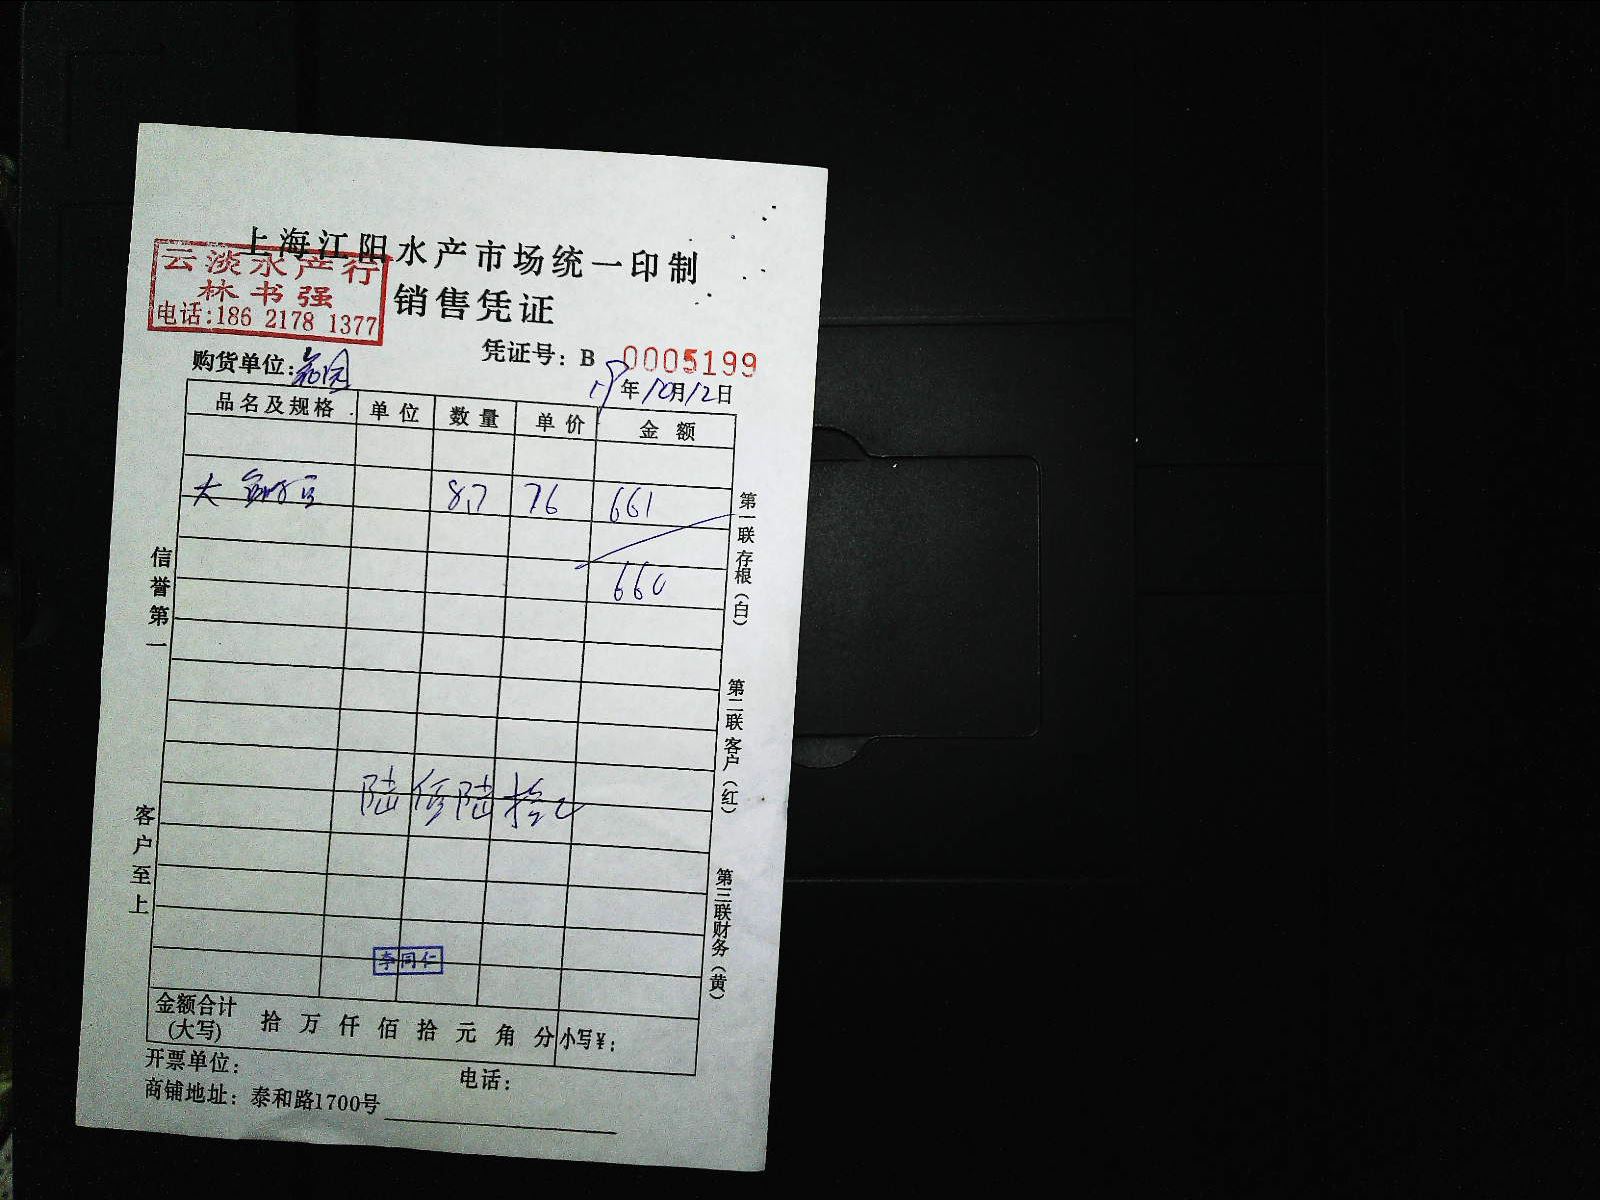 上海江阳水产市场统一印制
云淡水产行
林书强
电话:186 2178 1377
销售凭证
凭证号: B 0005199
购货单位:
年10月12日
品名及规格 单位 数量 单价 金额
大 8.7 76 661
660
陆佰陆拾元
李同仁
金额合计(大写) 拾 万 仟 佰 拾 元 角 分 小写¥:
开票单位: 电话:
商铺地址: 泰和路1700号
信誉第一
客户至上
第一联 存根(白)
第二联 客户(红)
第三联 财务(黄)